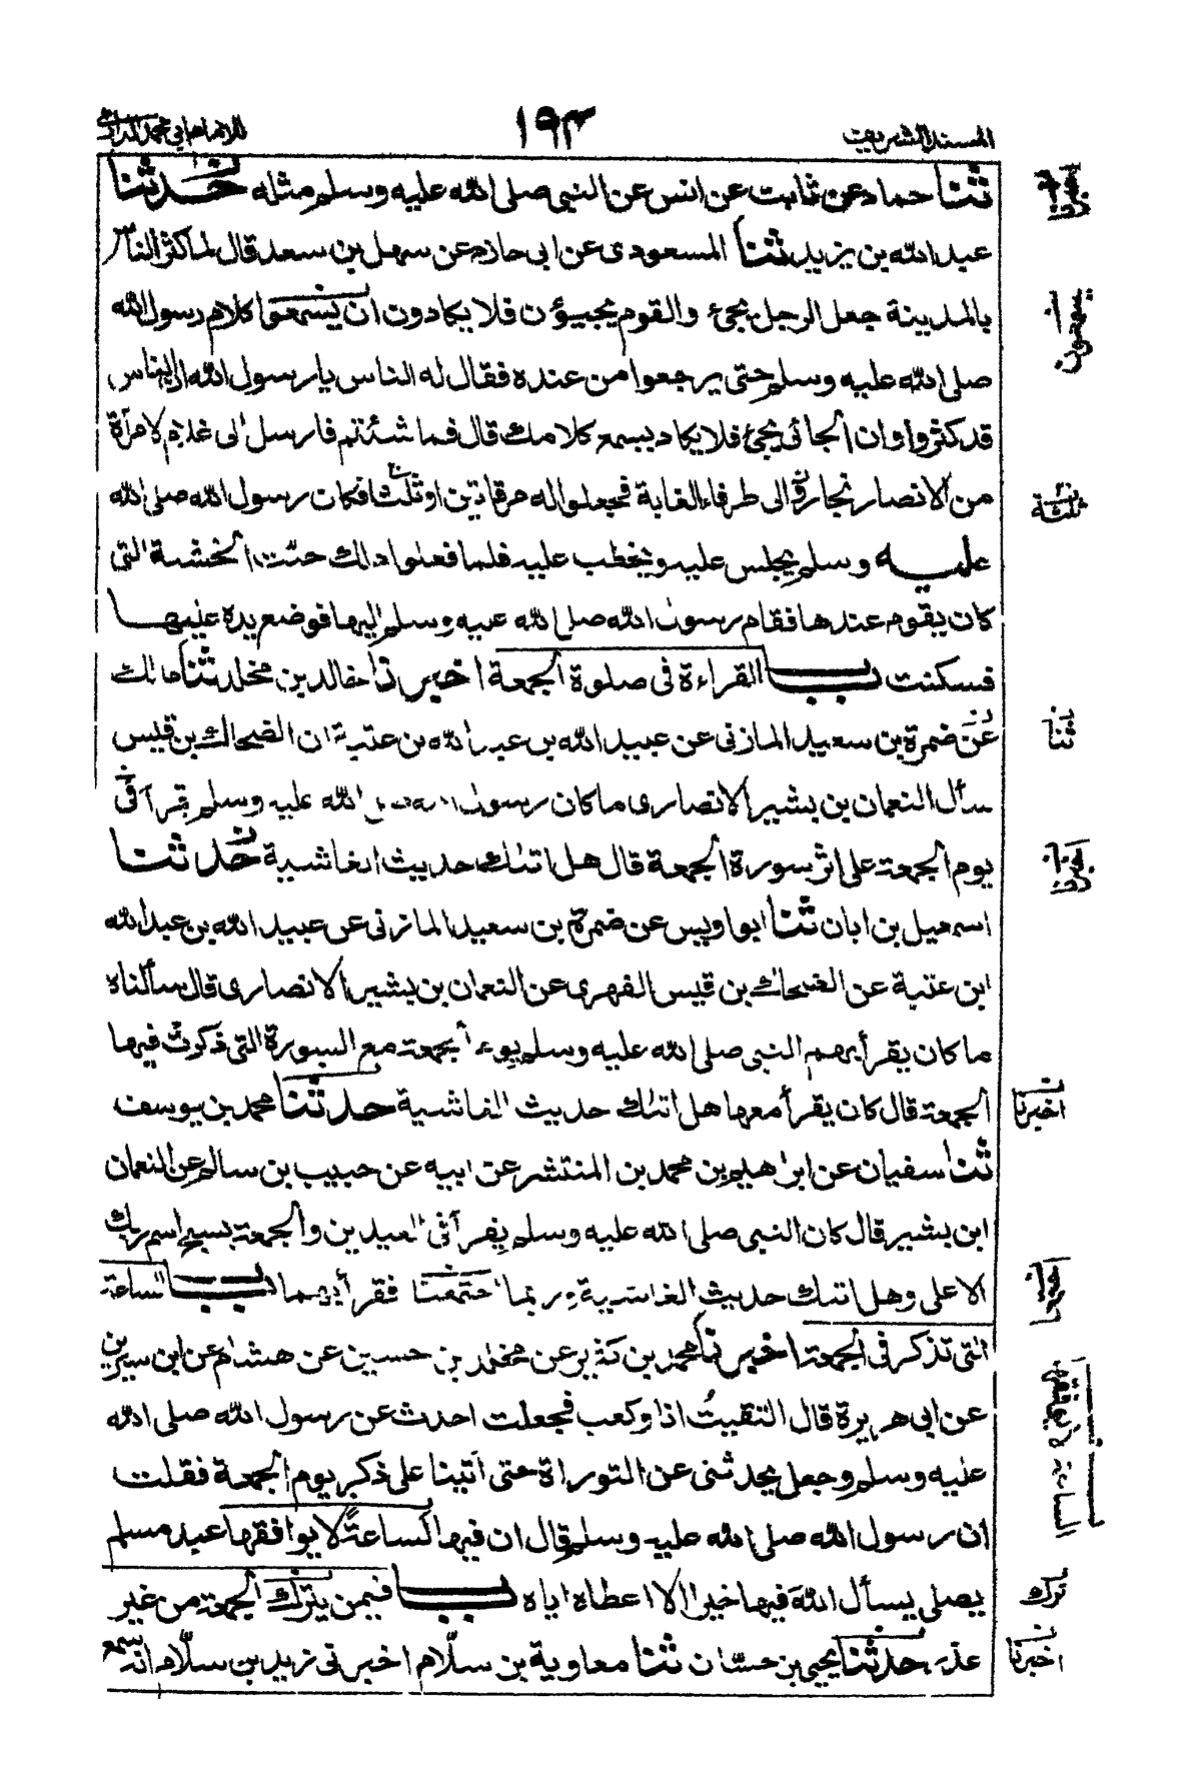 المسند الشريف
١٩٣
للامام ابي محمد الدارمي
ثنا حماد عن ثابت عن انس عن النبي صلى الله عليه وسلم مثله حدثنا
عبد الله بن يزيد ثنا المسعودى عن ابى حازم عن سهل بن سعد قال لما كثر الناس
بالمدينة جعل الرجل يجئ والقوم يجيؤن فلا يكادون ان يسمعوا كلام رسول الله
صلى الله عليه وسلم حتى يرجعوا من عنده فقال له الناس يا رسول الله ان الناس
قد كثروا وان الجائى يجئ فلا يكاد يسمع كلامك قال فما شئتم فارسل الى غلام لامرأة
من الانصار نجار الى طرفاء الغابة فجعلوا له مرقاتين او ثلث فكان رسول الله صلى الله
عليه وسلم يجلس عليه ويخطب عليه فلما فعلوا ذالك حنت الخشبة التى
كان يقوم عندها فقام رسول الله صلى الله عليه وسلم اليها فوضع يده عليها
فسكنت باب القراءة فى صلوة الجمعة اخبرنا خالد بن مخلد ثنا مالك
عن ضمرة بن سعيد المازنى عن عبيد الله بن عبد الله بن عتبة ان الضحاك بن قيس
سأل النعمان بن بشير الانصارى ما كان رسول الله صلى الله عليه وسلم يقرأ فى
يوم الجمعة على اثر سورة الجمعة قال هل اتٰك حديث الغاشية حدثنا
اسمعيل بن ابان ثنا ابو اويس عن ضمرة بن سعيد المازنى عن عبيد الله بن عبد الله
ابن عتبة عن الضحاك بن قيس الفهرى عن النعمان بن بشير الانصارى قال سألناه
ما كان يقرأ بهم النبى صلى الله عليه وسلم يوم الجمعة مع السورة التى ذكرت فيها
الجمعة قال كان يقرأ معها هل اتٰك حديث الغاشية حدثنا محمد بن يوسف
ثنا سفيان عن ابراهيم بن محمد بن المنتشر عن ابيه عن حبيب بن سالم عن النعمان
ابن بشير قال كان النبى صلى الله عليه وسلم يقرأ فى العيدين والجمعة بسبح اسم ربك
الاعلى وهل اتٰك حديث الغاشية وربما اجتمعتا فقرأ بهما باب الساعة
التى تذكر فى الجمعة اخبرنا محمد بن كثير عن مخلد بن حسين عن هشام عن ابن سيرين
عن ابى هريرة قال التقيت انا وكعب فجعلت احدث عن رسول الله صلى الله
عليه وسلم وجعل يحدثنى عن التوراة حتى اتينا على ذكر يوم الجمعة فقلت
ان رسول الله صلى الله عليه وسلم قال ان فيها لساعةً لا يوافقها عبد مسلم
يصلى يسأل الله فيها خيرا الا اعطاه اياه باب فيمن يترك الجمعة من غير
عذر حدثنا يحيى بن حسّان ثنا معاوية بن سلّام اخبرنى زيد بن سلّام انه سمع
اخبرنا
يسمعون
ثلثة
ثنا
اخبرنا
اخبرنا
ترك
اخبرنا